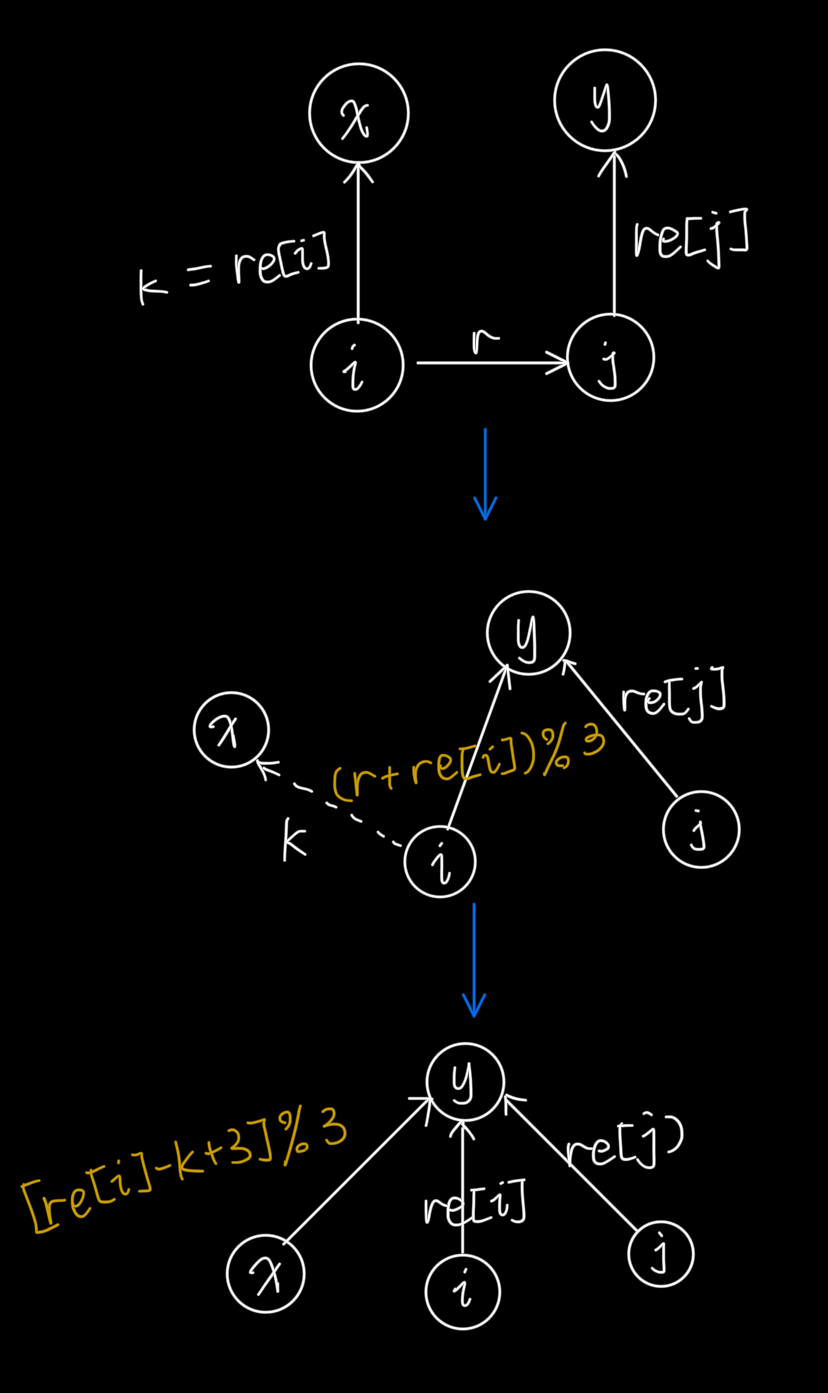 x
y
k = re[i]
re[j]
i
r
j
y
x
re[j]
(r+re[i])%3
k
i
j
y
[re[i]-k+3]%3
re[j)
re[i]
x
i
j